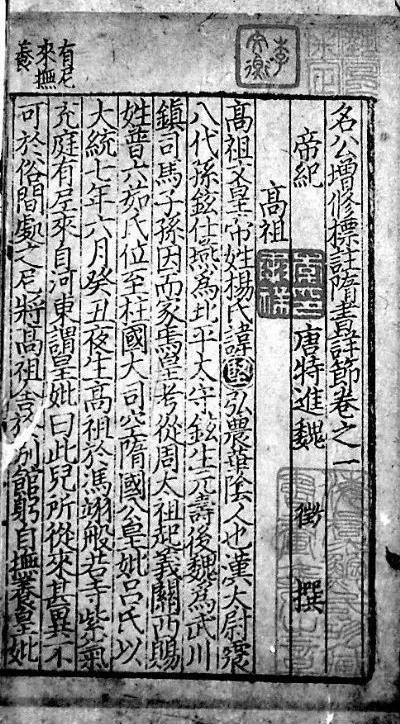 名公增修標註隋書詳節卷之一
帝紀 唐特進魏 徵 撰
高祖
高祖文皇帝姓楊氏諱堅弘農華陰人也漢太尉震
八代孫鉉仕燕為北平太守鉉生元壽後魏為武川
鎮司馬子孫因而家焉皇考從周太祖起義關西賜
姓普六茹氏位至柱國大司空隋國公皇妣呂氏以
大統七年六月癸丑夜生高祖於馮翊般若寺紫氣
充庭有尼來自河東謂皇妣曰此兒所從來甚異不
可於俗間處之尼將高祖舍於別館躬自撫養皇妣
有尼
來撫
養